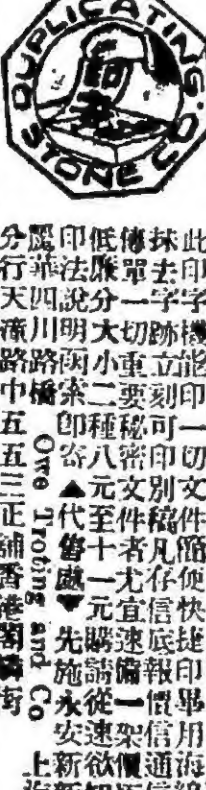 DUPLICATING
STONE
此印字機能印一切文件簡便快捷印畢用海
抹去字跡立刻可印別稿凡存信底報價信通信
傳單一切重要秘密文件者尤宜速備一架價
低廉分大小二種八元至十一元購請從速欲知
印法說明函索即寄▲代售處▼先施永安新新
麗華四川路橋 Owe Troting and Co 上海
分行天潼路中五五三正舖香港閣麟街